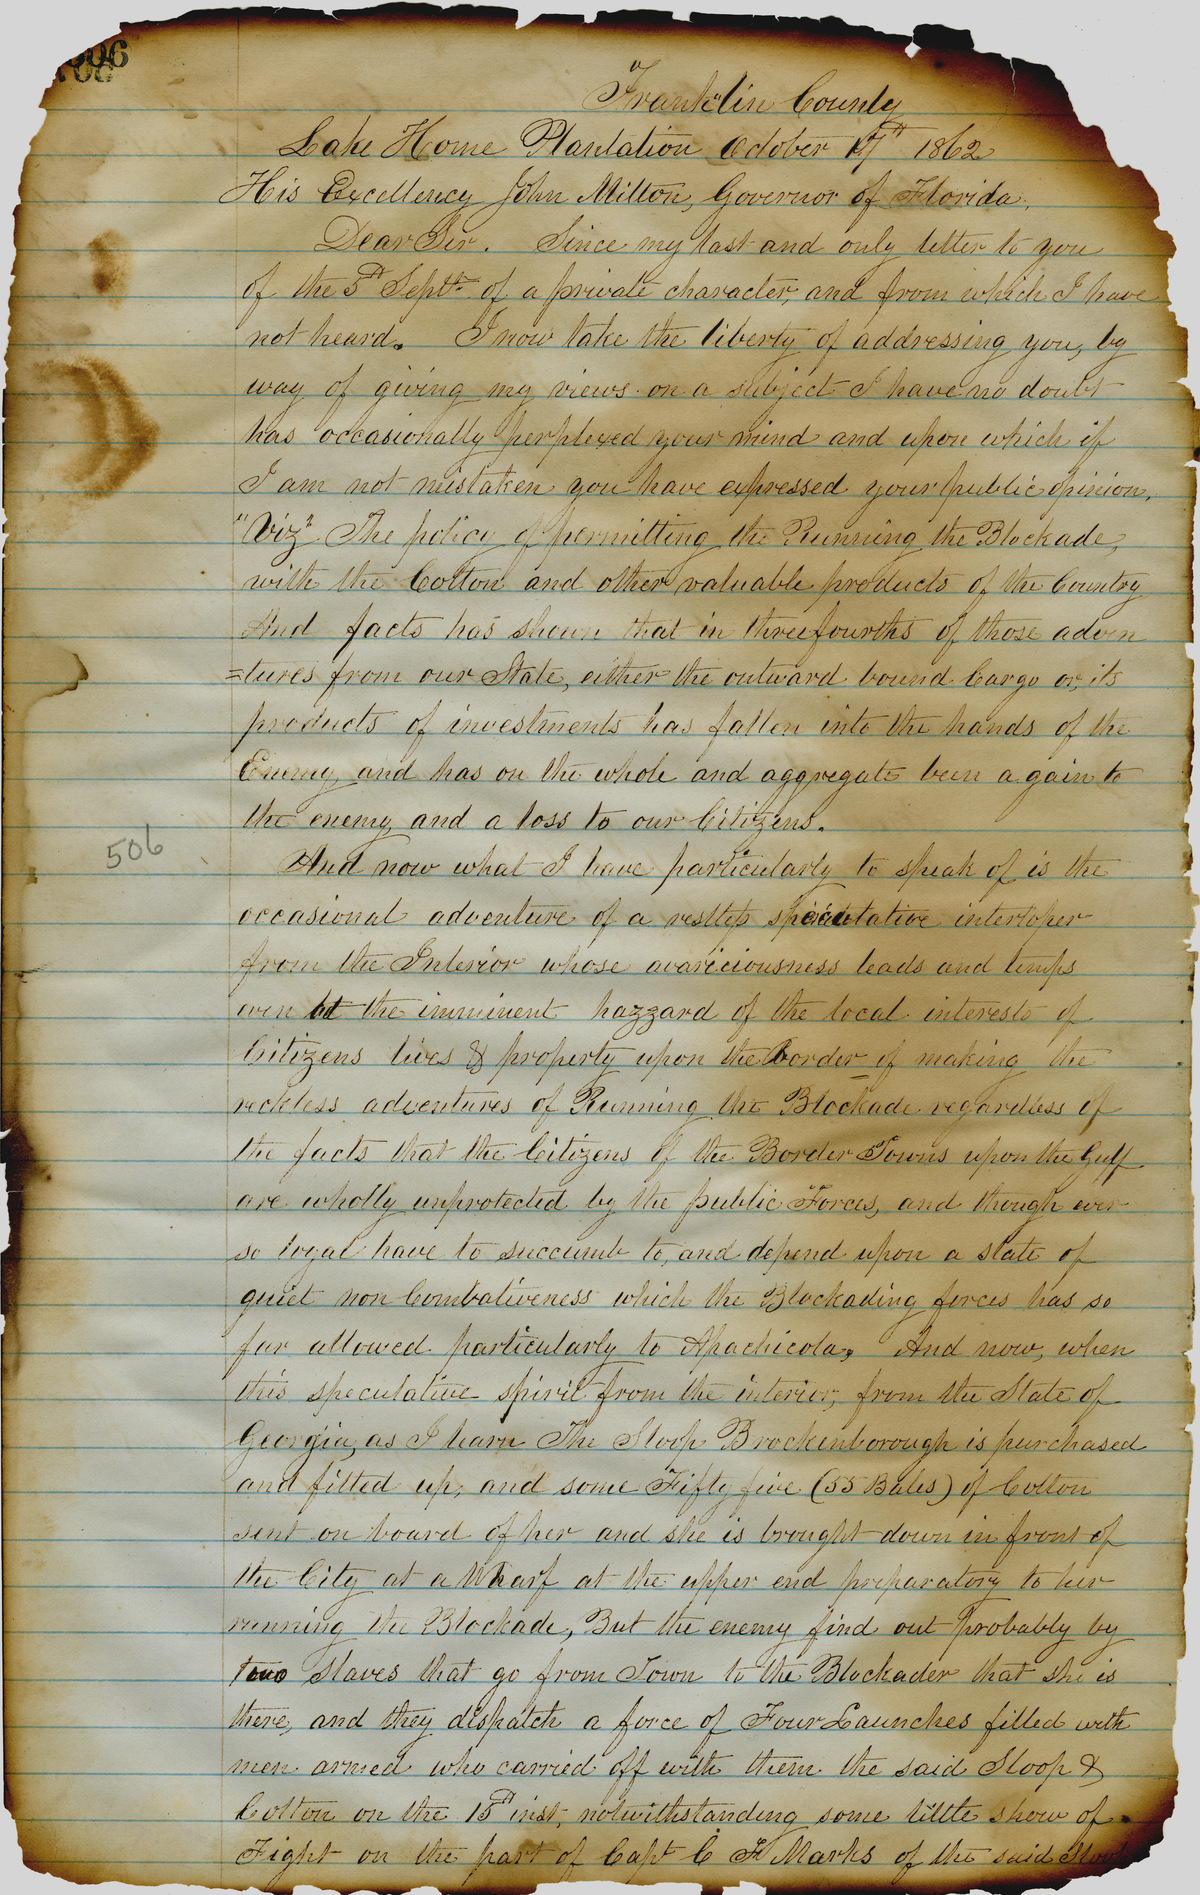 506
Franklin County
Lake Home Plantation October 17th 1862
His Excellency John Milton, Governor of Florida,
Dear Sir. Since my last and only letter to you
of the 5th Septr. of a private character, and from which I have
not heard. I now take the liberty of addressing you, by
way of giving my views on a subject I have no doubt
has occasionally perplexed your mind and upon which if
I am not mistaken you have expressed your public opinion,
"Viz" The policy of permitting the Running the Blockade,
with the Cotton and other valuable products of the Country
And facts has shown that in threefourths of those adven
=tures from our State, either the outward bound Cargo or, its
products of investments has fallen into the hands of the
Enemy, and has on the whole and aggregate been a gain to
the enemy and a loss to our Citizens.
And now what I have particularly to speak of is the
occasional adventure of a restless speculative interloper
from the Interior whose avariciousness leads and temps
even at the imminent hazzard of the local interests of
Citizens lives & property upon the border of making the
reckless adventures of Running the Blockade regardless of
the facts that the Citizens of the Border Towns upon the Gulf
are wholly unprotected by the public Forces, and though ever
so loyal have to succumb to, and depend upon a state of
quiet non Combativeness which the Blockading forces has so
far allowed particularly to Apachicola, And now, when
this speculative spirit from the interior, from the State of
Georgia, as I learn The Sloop Brockenborough is purchased
and fitted up, and some Fifty five (55 Bales) of Cotton
sent on board of her and she is brought down in front of
the City at a Wharf at the upper end preparatory to her
running the Blockade, But the enemy find out probably by
two slaves that go from Town to the Blockader that she is
there, and they dispatch a force of Four Launches filled with
men armed who carried off with them the said Sloop &
Cotton on the 15th inst, notwithstanding some little show of
Fight on the part of Capt C F Marks of the said Sloop
506